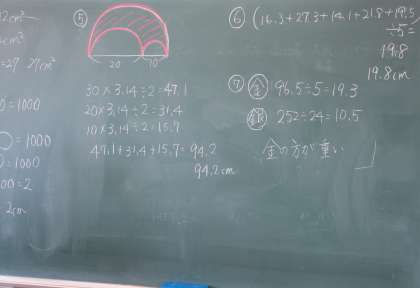 12cm²
cm²
=27 27cm³
0=1000
=1000
0=1000
00=2
2cm
⑤
20
10
30×3.14÷2=47.1
20×3.14÷2=31.4
10×3.14÷2=15.7
47.1+31.4+15.7=94.2
94.2cm
⑥ (16.3+27.3+14.1+21.8+19.5
÷5=
19.8
19.8cm
⑦ 金 96.5÷5=19.3
銀 252÷24=10.5
金の方が重い